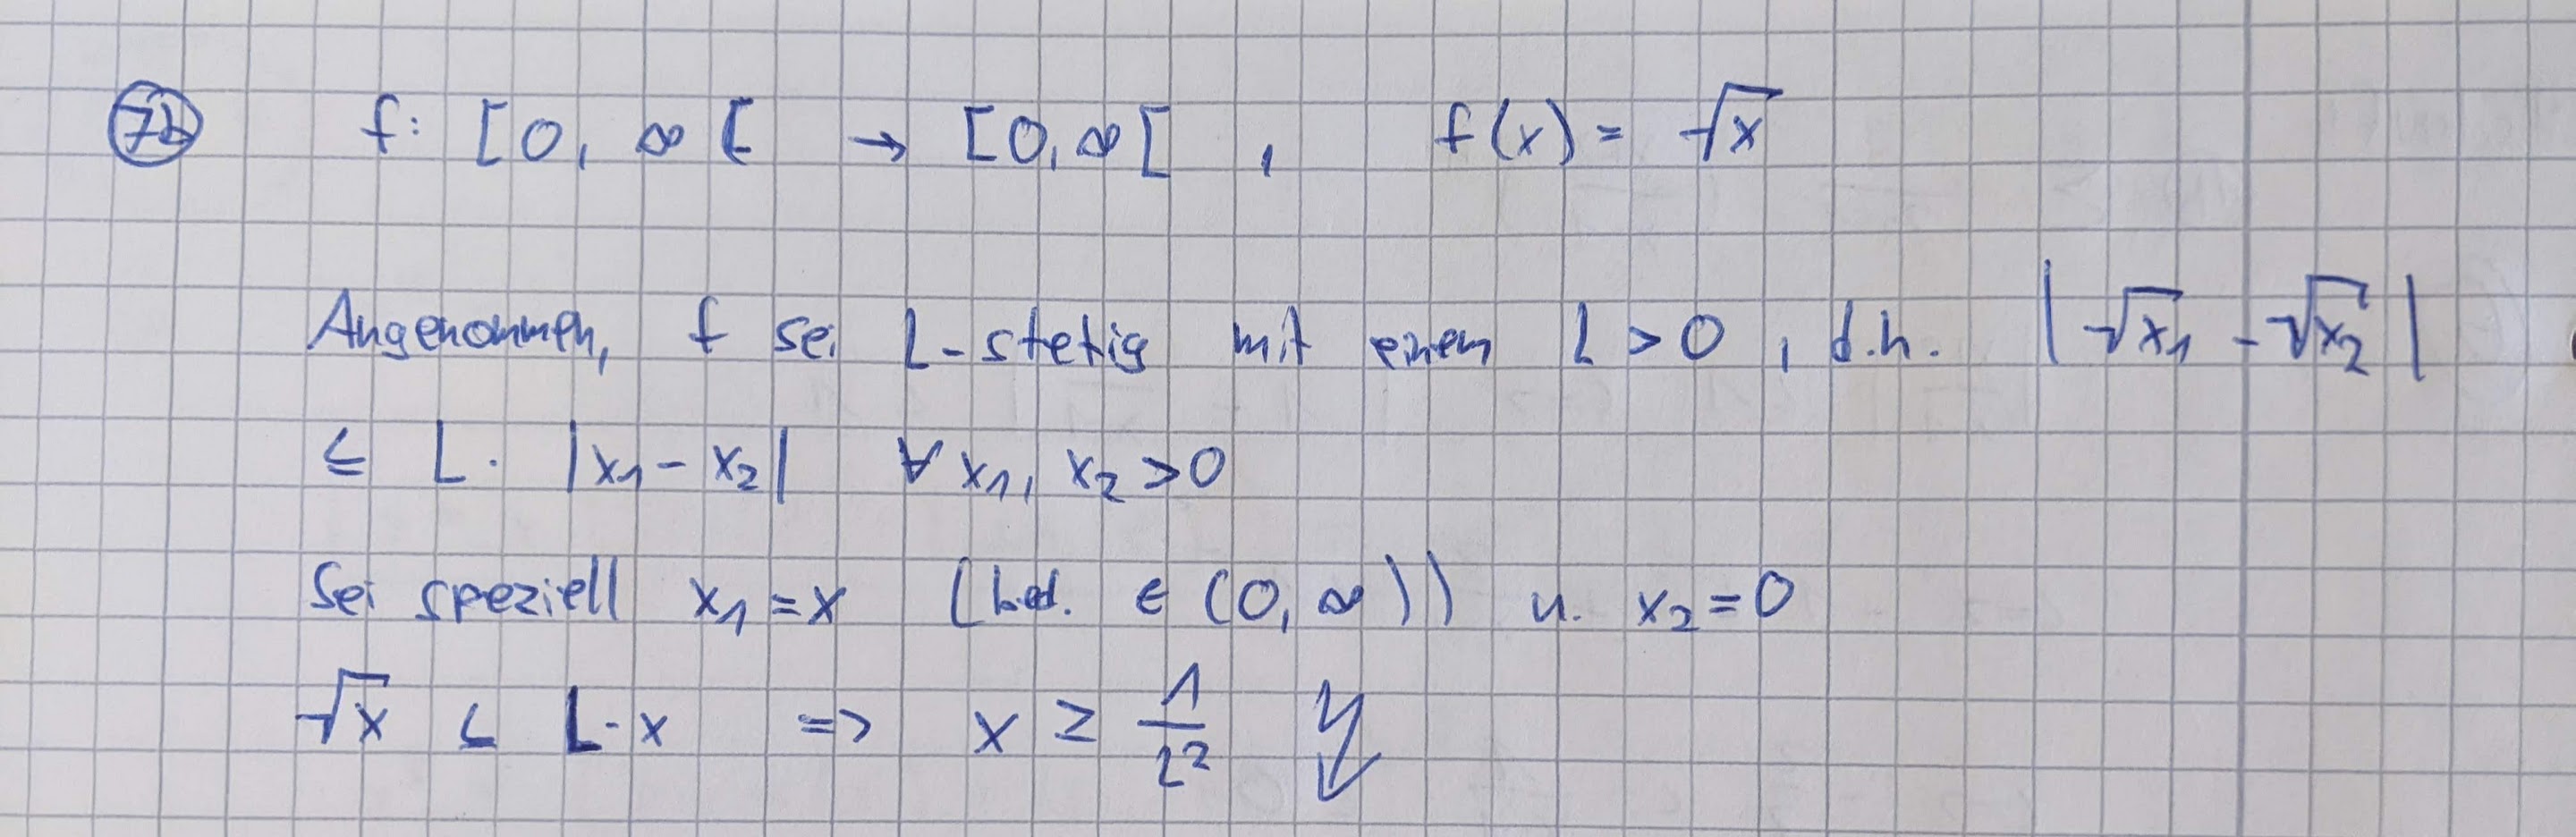 7b f: [0, ∞[ → [0, ∞[ , f(x) = √x
Angenommen, f sei L-stetig mit einem L > 0, d.h. |√x₁ - √x₂|
≤ L · |x₁ - x₂| ∀ x₁, x₂ > 0
Sei speziell x₁ = x (bel. ∈ (0, ∞)) u. x₂ = 0
√x ≤ L · x => x ≥ 1/L² ↯